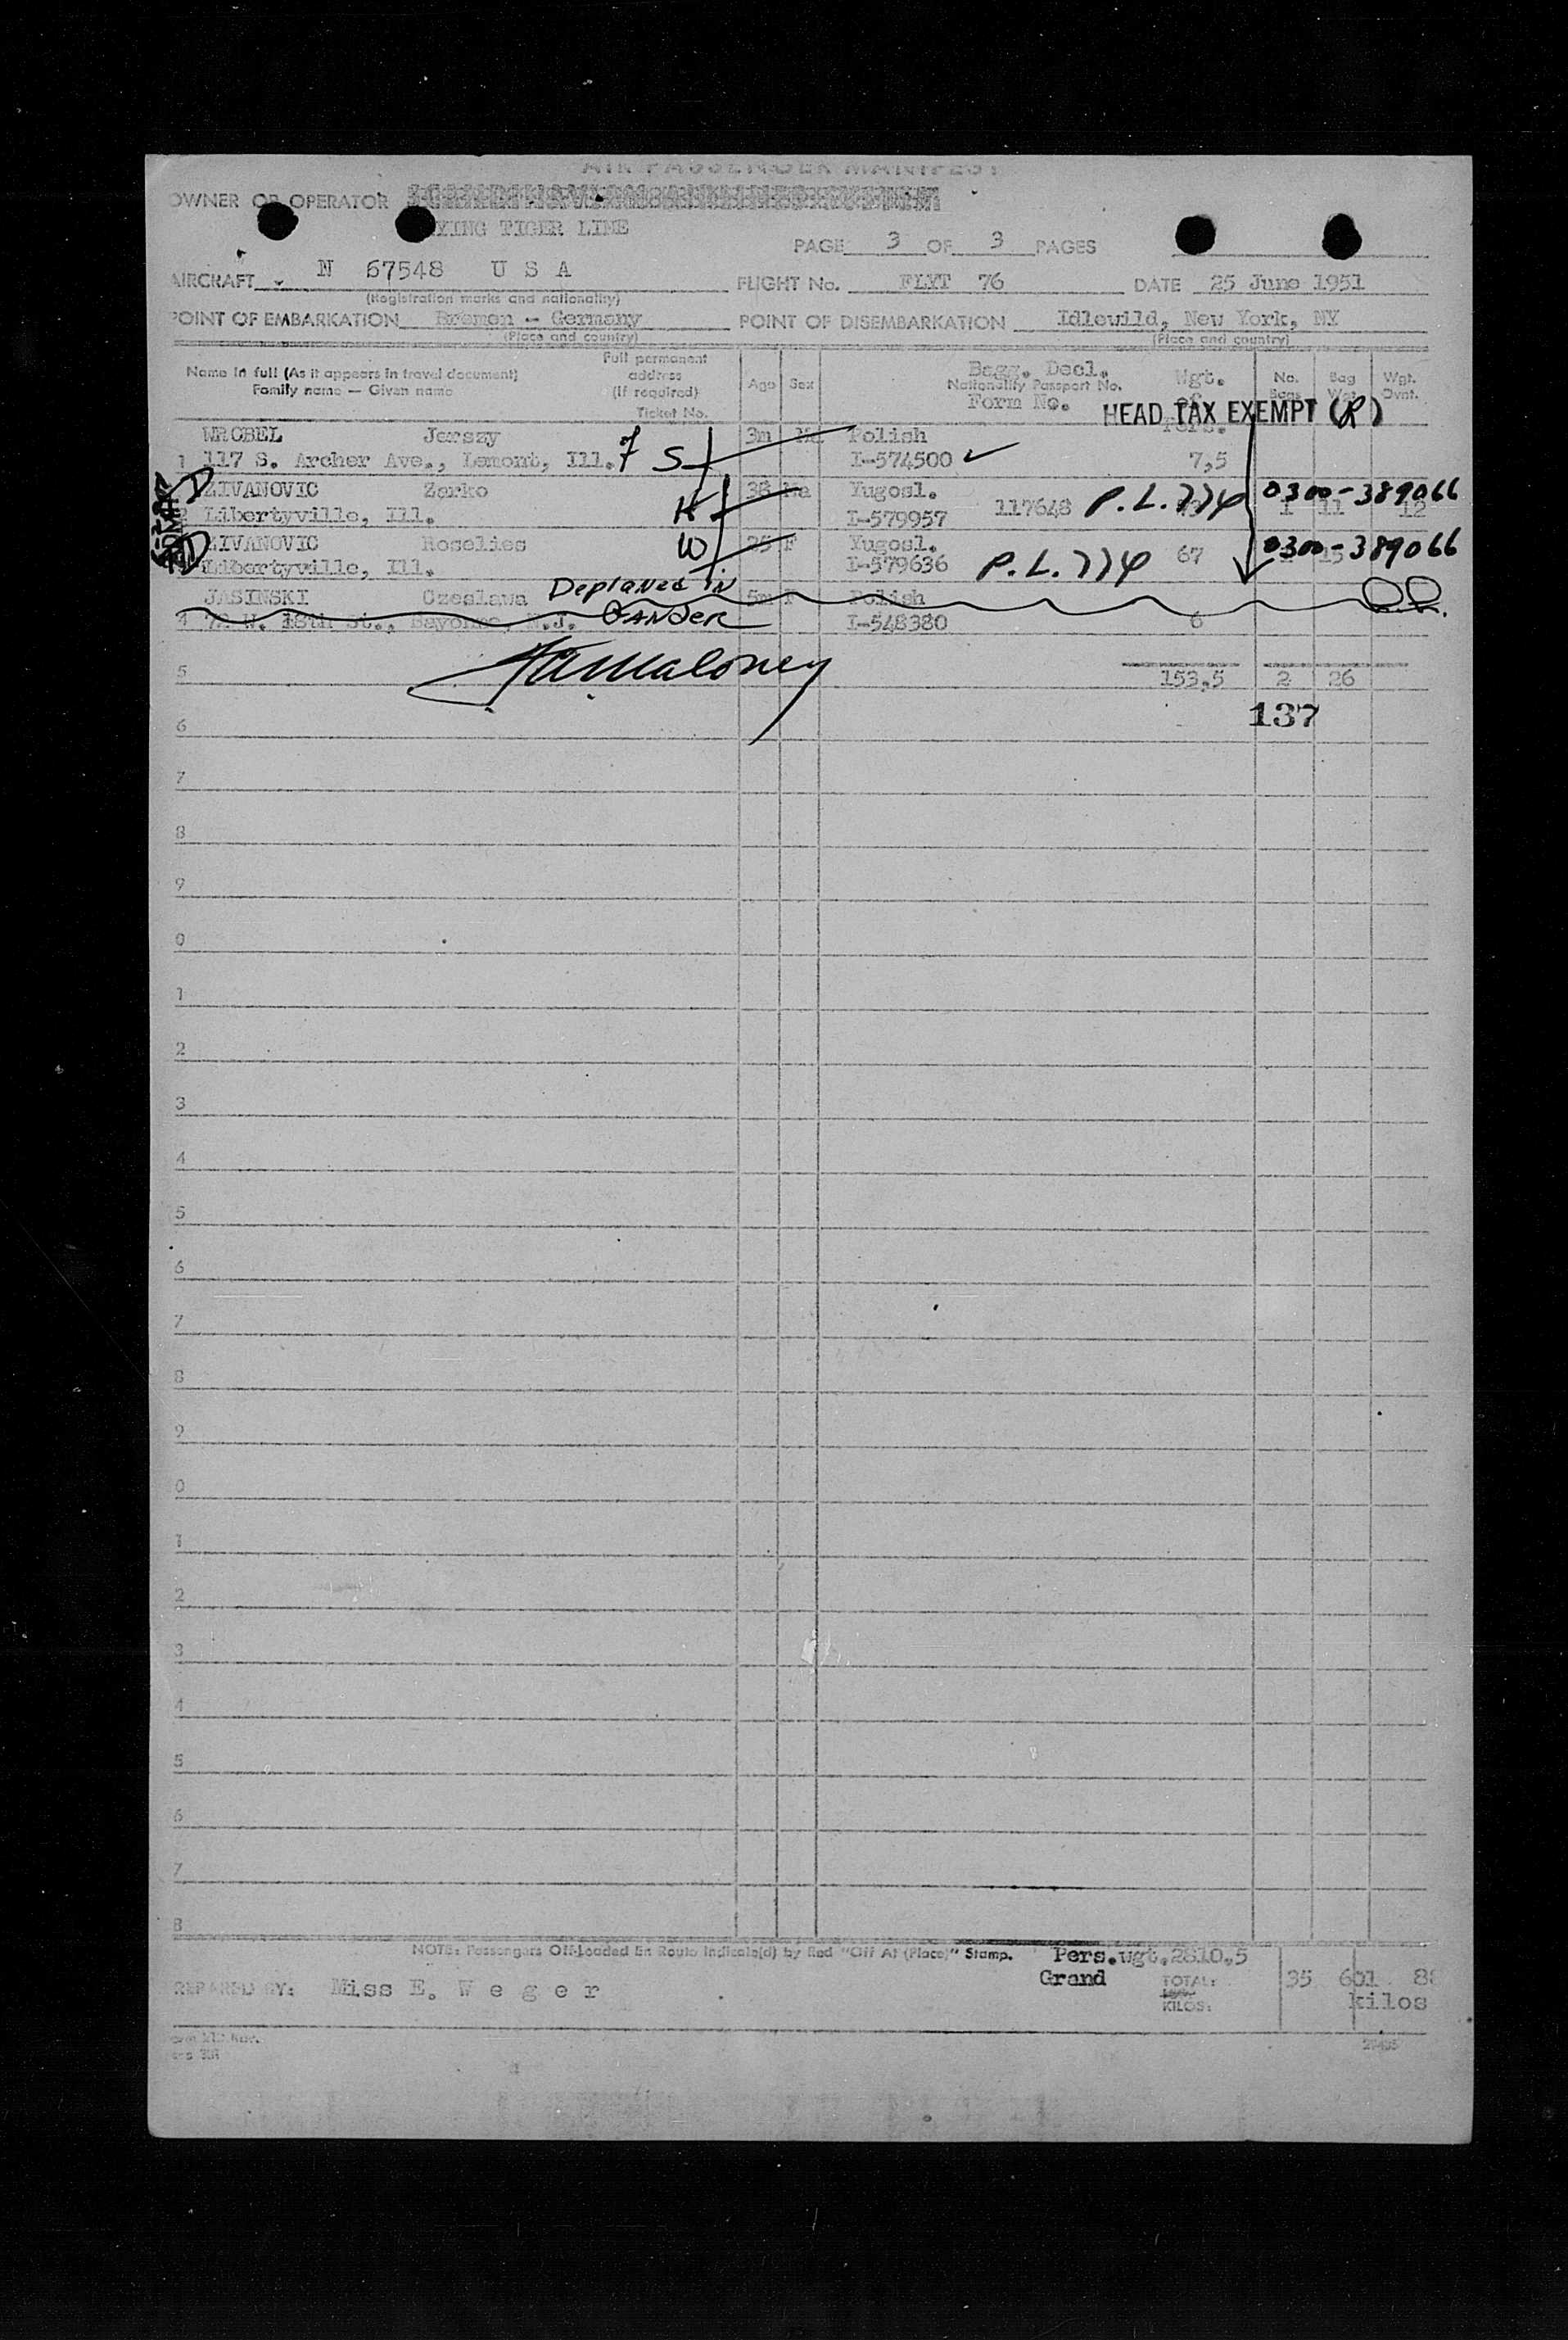 AIR PASSENGER MANIFEST
OWNER OR OPERATOR
YING TIGER LINE
PAGE 3 OF 3 PAGES
AIRCRAFT N 67548 U S A FLIGHT No. FLYT 76 DATE 25 June 1951
(Registration marks and nationality)
POINT OF EMBARKATION Bremen - Germany POINT OF DISEMBARKATION Idlewild, New York, NY
(Place and country) (Place and country)
Name in full (As it appears in travel document) Full permanent address (If required) Age Sex Bagg. Decl. Wgt. No. Bag Wgt.
Family name — Given name Ticket No. Nationality Passport No. Form No. of Pers. Bags Wgt. Ovwt.
HEAD TAX EXEMPT (R)
WROBEL Jerszy 7 S 3m Ma Polish
1 117 S. Archer Ave., Lemont, Ill. I-574500 ✓ 7,5
D ZIVANOVIC Zarko 38 Ma Yugosl. 0300-389066
2 Libertyville, Ill. K I-579957 117648 P.L.774 1 11 12
D ZIVANOVIC Roselies W 25 F Yugosl. 0300-389066
Libertyville, Ill. I-579636 P.L.774 67 15
JASINSKI Czeslawa Deplaned in 5m F Polish
4 W. 18th St., Bayonne, N.J. Gander I-548380 6
5 JAMaloney 153,5 2 26
137
6
7
8
9
0
1
2
3
4
5
6
7
8
9
0
1
2
3
4
5
6
7
8
NOTE: Passengers Off-Loaded En Route Indicate(d) by Red "Off At (Place)" Stamp. Pers.wgt.2810,5
PREPARED BY: Miss E. W e g e r Grand TOTAL: KILOS: 35 601 88
kilos